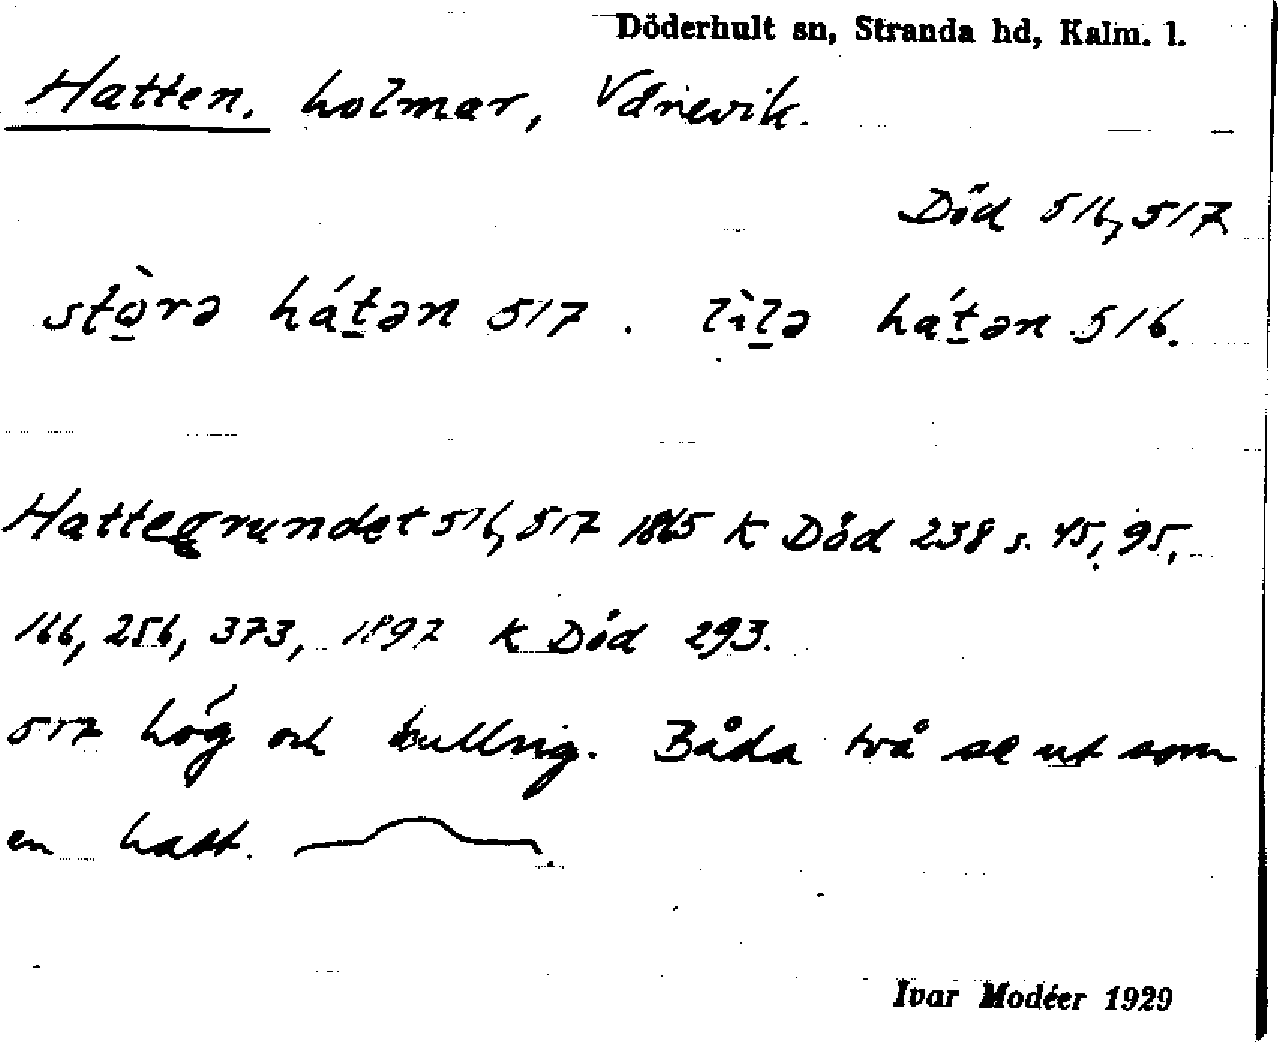 Döderhult sn, Stranda hd, Kalm. l.
Hatten, holmar, Vånevik.
Död 516, 517
stò̲rə hát̲ən 517. lìl̲ə hát̲ən 516.
Hattegrundet 516, 517 1865 K Död 238 s. 45, 95,
166, 256, 373, 1897 K Död 293.
517 hög och bullrig. Båda två se ut som
en hatt.
Ivar Modéer 1929